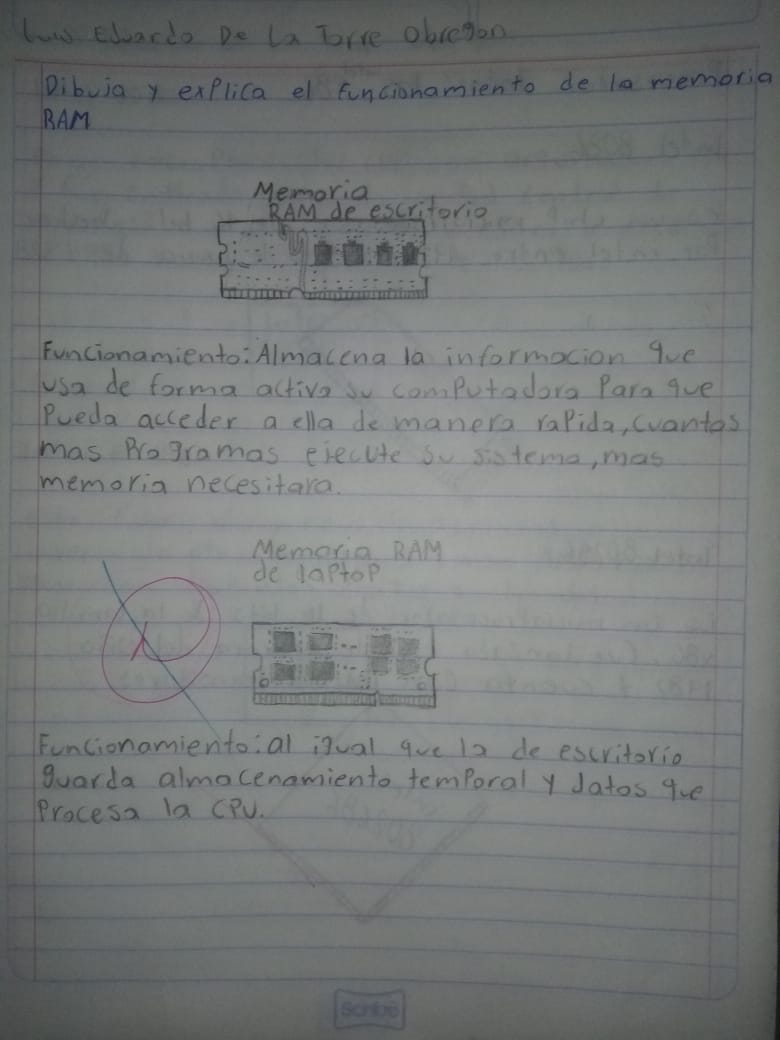 Luis Eduardo De La Torre Obregon
Dibuja y explica el funcionamiento de la memoria
RAM
Memoria
RAM de escritorio
Funcionamiento: Almacena la informacion que
usa de forma activa su computadora Para que
Pueda acceder a ella de manera rapida, cuantos
mas Programas ejecute su sistema, mas
memoria necesitara.
Memoria RAM
de laptop
Funcionamiento: al igual que la de escritorio
guarda almacenamiento temporal y datos que
Procesa la CPU.
Scribe